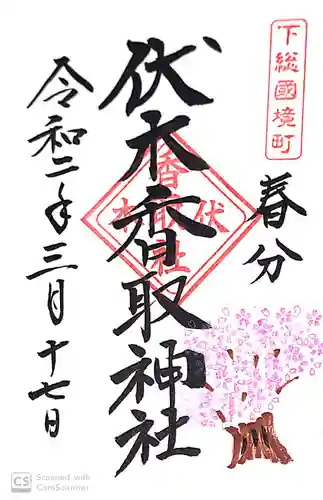 下総國境町
春分
伏木香取神社
伏木香取社
令和二年三月十七日
CS Scanned with
CamScanner